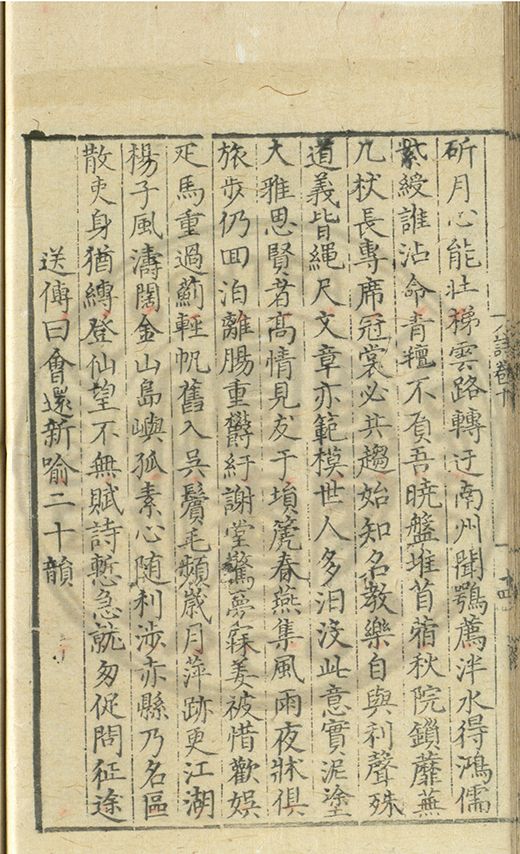 斫月心能壯梯雲路轉迂南州聞鶚薦泮水得鴻儒
紫綬誰沾命青氊不負吾曉盤堆苜蓿秋院鎖蘼蕪
几杖長專席冠裳必共趨始知名教樂自與利聲殊
道義皆繩尺文章亦範模世人多汩沒此意實泥塗
大雅思賢者高情見友于塤篪春燕集風雨夜牀俱
旅步仍回泊離腸重欝紆謝堂驚夢寐姜被惜歡娯
疋馬重過薊輕帆舊入吳鬢毛頻歲月萍跡更江湖
楊子風濤闊金山島嶼孤素心随利涉赤縣乃名區
散吏身猶縛登仙望不無賦詩慙急就匆促問征途
送傅曰會還新喻二十韻
詩卷十